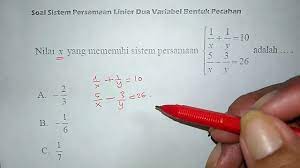 Soal Sistem Persamaan Linier Dua Variabel Bentuk Pecahan
Nilai x yang memenuhi sistem persamaan { 1/x + 1/y = 10
5/x − 3/y = 26 adalah ....
1/x + 1/y = 10
5/x − 3/y = 26.
A. −2/3
B. −1/6
C. 1/7